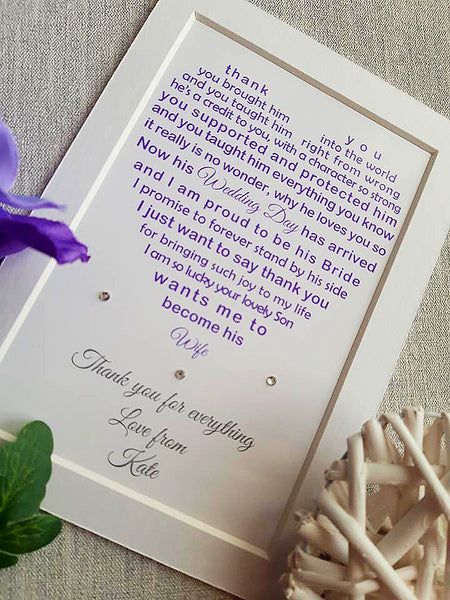 thank you
you brought him into the world
and you taught him right from wrong
he's a credit to you, with a character so strong
you supported and protected him
and you taught him everything you know
it really is no wonder, why he loves you so
Now his Wedding Day has arrived
and I am proud to be his Bride
I promise to forever stand by his side
I just want to say thank you
for bringing such joy to my life
I am so lucky your lovely Son
wants me to
become his
Wife
Thank you for everything
Love from
Kate